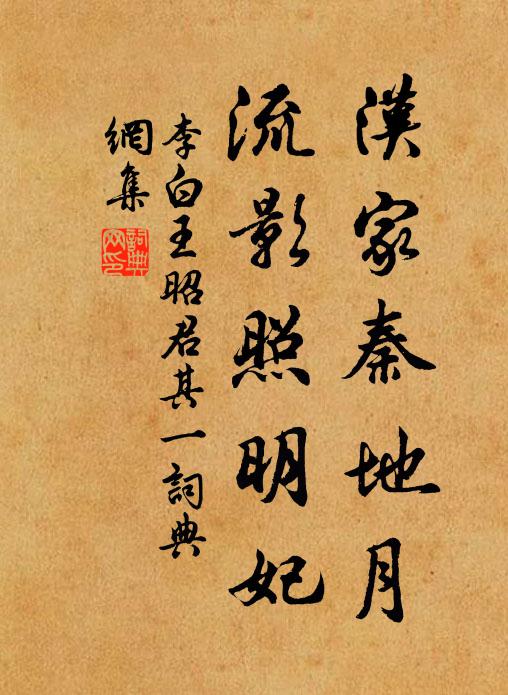 漢家秦地月
流影照明妃
李白王昭君其一詞典
網集
詞典
网印